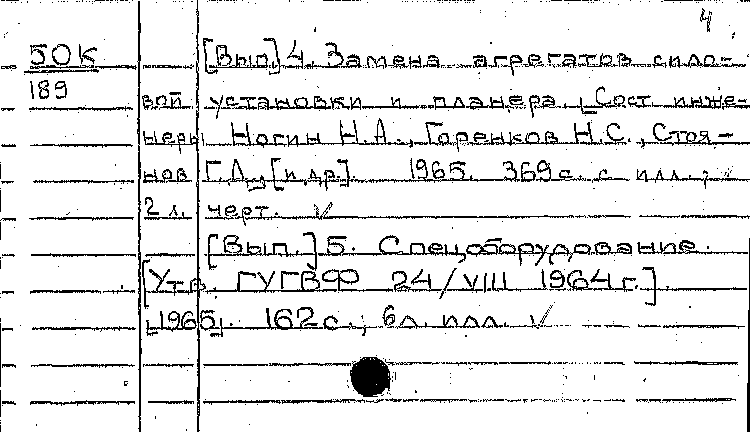 4
50К
189
[Вып.] 4. Замена агрегатов сило-
вой установки и планера. [Сост. инже-
неры Ногин Н.А., Горенков Н.С., Стоя-
нов Г.Д., [и др.]. 1965. 369 с. с илл.;
2 л. черт. ✓
[Вып.] 5. Спецоборудование.
[Утв. ГУГВФ 24/VIII 1964 г.]
[1965]. 162 с.; 6 л. илл. ✓